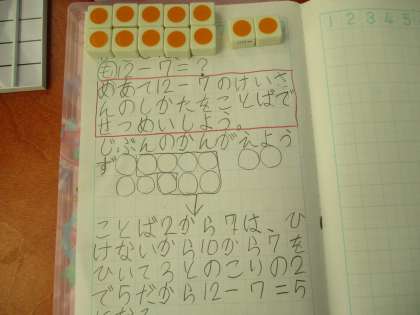 12-7=?
めあて12-7のけいさ
んのしかたをことばで
せつめいしよう。
じぶんのかんがえよう
ず
ことば2から7は、ひ
けないから10から7を
ひいて3とのこりの2
で5だから12-7=5
になる
1 2 3 4 5